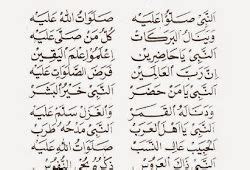 النَّبِي صَلُّوا عَلَيْهِ صَلَوَاتُ اللهِ عَلَيْهِ
وَيَنَالُ الْبَرَكَاتِ كُلُّ مَنْ صَلَّى عَلَيْهِ
النَّبِي يَا حَاضِرِيْنَ اِعْلَمُوْا عِلْمَ الْيَقِيْنِ
اِنَّ رَبَّ الْعَالَمِيْنَ فَرَضَ الصَّلَوَاتِ عَلَيْهِ
النَّبِي يَا مَنْ حَضَرْ النَّبِي خَيْرُ الْبَشَرْ
وَدَنَا لَهُ الْقَمَرْ وَالْغَزَلْ سَلَّمْ عَلَيْهِ
النَّبِي يَا اَهْلَ الْعَرَبْ النَّبِي مَدْحُهُ طَرَبْ
لِلْحَبِيْبِ عَالِى النَّسَبْ صَلَوَاتُ اللهِ عَلَيْهِ
النَّبِي ذَاكَ الْعَرُوْسْ ذِكْرُهُ يُحْيِى النُّفُوْسْ